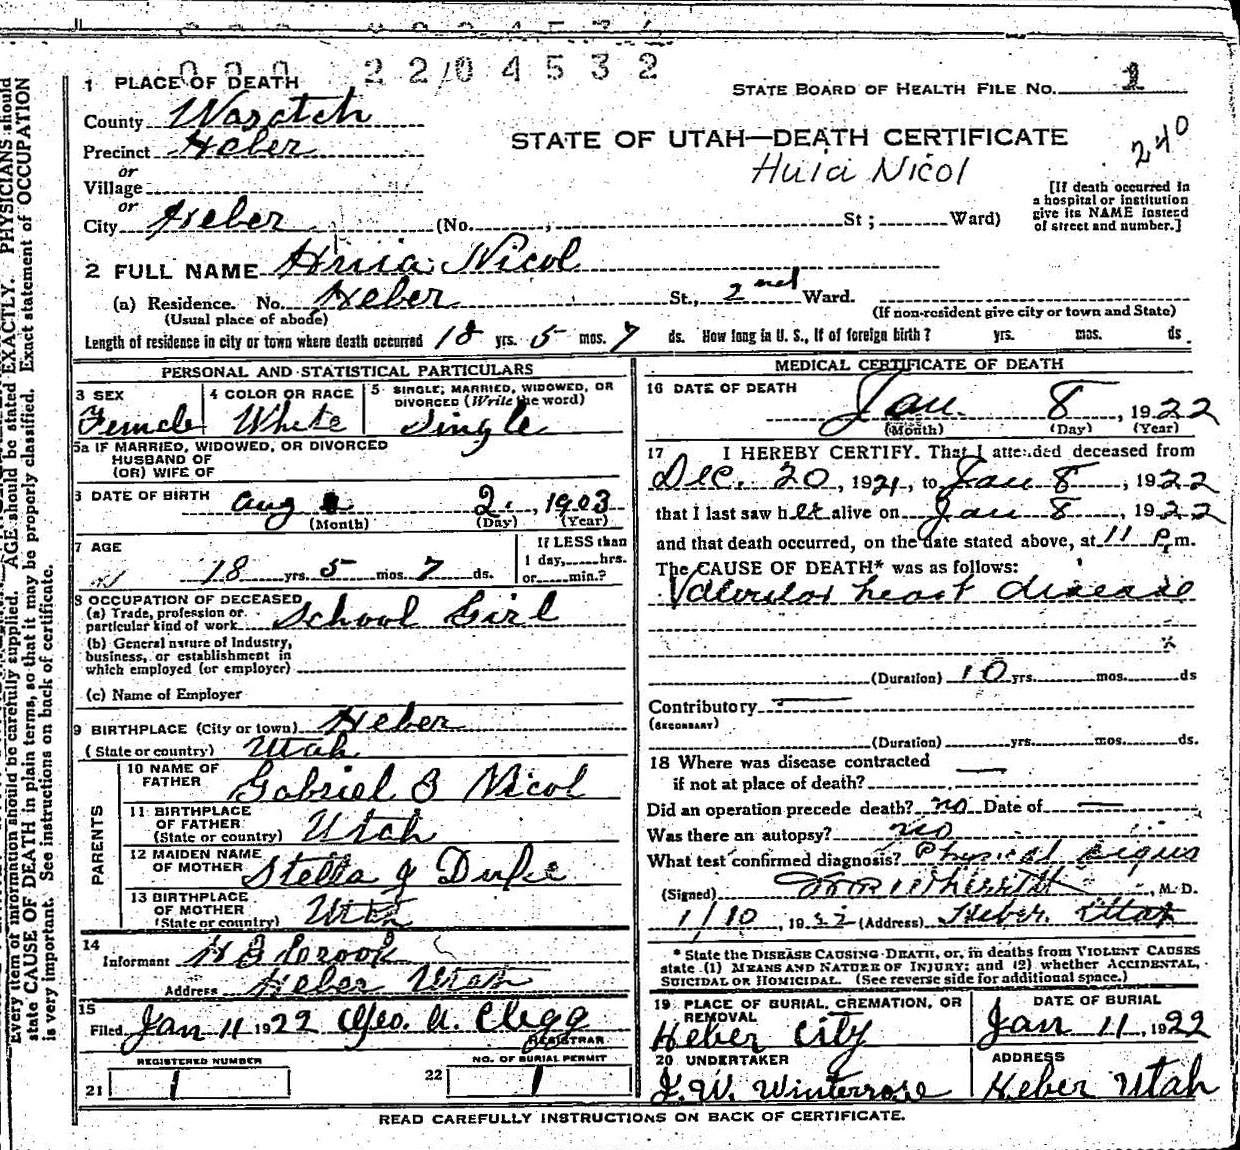 000 2204532
1 PLACE OF DEATH
STATE BOARD OF HEALTH FILE NO. 1
County Wasatch
STATE OF UTAH—DEATH CERTIFICATE
240
Precinct Heber
Nicol
or
Village
[If death occurred in a hospital or institution give its NAME instead of street and number.]
or
City Heber (No. , St ; Ward)
2 FULL NAME Nicol
(a) Residence. No. Heber St., 2nd Ward.
(Usual place of abode)
(If non-resident give city or town and State)
Length of residence in city or town where death occurred 18 yrs. 5 mos. 7 ds. How long in U. S., if of foreign birth? yrs. mos. ds.
PERSONAL AND STATISTICAL PARTICULARS
3 SEX Female
4 COLOR OR RACE White
5 SINGLE, MARRIED, WIDOWED, OR DIVORCED (Write the word) Single
5a IF MARRIED, WIDOWED, OR DIVORCED
HUSBAND OF
(OR) WIFE OF
6 DATE OF BIRTH Aug 2, 1903
(Month) (Day) (Year)
7 AGE
18 yrs. 5 mos. 7 ds.
If LESS than 1 day, hrs. or min.?
8 OCCUPATION OF DECEASED
(a) Trade, profession or particular kind of work School Girl
(b) General nature of Industry, business, or establishment in which employed (or employer)
(c) Name of Employer
9 BIRTHPLACE (City or town) Heber
(State or country) Utah
PARENTS
10 NAME OF FATHER Gabriel B Nicol
11 BIRTHPLACE OF FATHER (State or country) Utah
12 MAIDEN NAME OF MOTHER Stella J Duke
13 BIRTHPLACE OF MOTHER (State or country) Utah
14
Informant
Address Heber Utah
15
Filed Jan 11 1922 Geo. A. Clegg
REGISTRAR
REGISTERED NUMBER
21 1
NO. OF BURIAL PERMIT
22 1
MEDICAL CERTIFICATE OF DEATH
16 DATE OF DEATH
Jan. 8, 1922
(Month) (Day) (Year)
17 I HEREBY CERTIFY. That I attended deceased from
Dec. 20, 1921, to Jan 8, 1922
that I last saw her alive on Jan 8, 1922
and that death occurred, on the date stated above, at 11 P.m.
The CAUSE OF DEATH* was as follows:
Valvular heart disease
(Duration) 10 yrs. mos. ds
Contributory
(SECONDARY)
(Duration) yrs. mos. ds.
18 Where was disease contracted
if not at place of death?
Did an operation precede death? no Date of
Was there an autopsy? no
What test confirmed diagnosis? Physical signs
(Signed) , M. D.
1/10, 1922 (Address) Heber. Utah
* State the DISEASE CAUSING DEATH, or, in deaths from VIOLENT CAUSES
state (1) MEANS AND NATURE OF INJURY; and (2) whether ACCIDENTAL,
SUICIDAL OR HOMICIDAL. (See reverse side for additional space.)
19 PLACE OF BURIAL, CREMATION, OR REMOVAL
Heber City
DATE OF BURIAL
Jan 11, 1922
20 UNDERTAKER
J. W. Winterrose
ADDRESS
Heber Utah
READ CAREFULLY INSTRUCTIONS ON BACK OF CERTIFICATE.
Every item of information should be carefully supplied. AGE should be stated EXACTLY. PHYSICIANS should
state CAUSE OF DEATH in plain terms, so that it may be properly classified. Exact statement of OCCUPATION
is very important. See instructions on back of certificate.